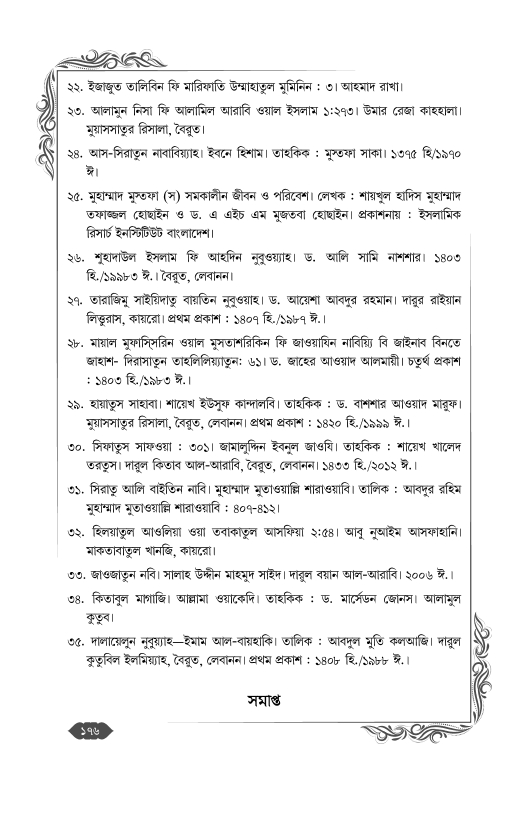 ২২. ইজাজুত তালিবিন ফি মারিফাতি উম্মাহাতুল মুমিনিন : ৩। আহমাদ রাখা।
২৩. আলামুন নিসা ফি আলামিল আরাবি ওয়াল ইসলাম ১:২৭৩। উমার রেজা কাহহালা।
মুয়াসসাতুর রিসালা, বৈরুত।
২৪. আস-সিরাতুন নাবাবিয়্যাহ। ইবনে হিশাম। তাহকিক : মুস্তফা সাকা। ১৩৭৫ হি/১৯৭০
ঈ।
২৫. মুহাম্মাদ মুস্তফা (স) সমকালীন জীবন ও পরিবেশ। লেখক : শায়খুল হাদিস মুহাম্মাদ
তফাজ্জল হোছাইন ও ড. এ এইচ এম মুজতবা হোছাইন। প্রকাশনায় : ইসলামিক
রিসার্চ ইনস্টিটিউট বাংলাদেশ।
২৬. শুহাদাউল ইসলাম ফি আহদিন নুবুওয়্যাহ। ড. আলি সামি নাশশার। ১৪০৩
হি./১৯৮৩ ঈ.। বৈরুত, লেবানন।
২৭. তারাজিমু সাইয়িদাতু বায়তিন নুবুওয়াহ। ড. আয়েশা আবদুর রহমান। দারুর রাইয়ান
লিত্তুরাস, কায়রো। প্রথম প্রকাশ : ১৪০৭ হি./১৯৮৭ ঈ.।
২৮. মায়াল মুফাস্‌সিরিন ওয়াল মুসতাশরিকিন ফি জাওয়াযিন নাবিয়্যি বি জাইনাব বিনতে
জাহাশ- দিরাসাতুন তাহলিলিয়্যাতুন: ৬১। ড. জাহের আওয়াদ আলমায়ী। চতুর্থ প্রকাশ
: ১৪০৩ হি./১৯৮৩ ঈ.।
২৯. হায়াতুস সাহাবা। শায়েখ ইউসুফ কান্দালবি। তাহকিক : ড. বাশশার আওয়াদ মারুফ।
মুয়াসসাতুর রিসালা, বৈরুত, লেবানন। প্রথম প্রকাশ : ১৪২০ হি./১৯৯৯ ঈ.।
৩০. সিফাতুস সাফওয়া : ৩০১। জামালুদ্দিন ইবনুল জাওযি। তাহকিক : শায়েখ খালেদ
তরতুস। দারুল কিতাব আল-আরাবি, বৈরুত, লেবানন। ১৪৩৩ হি./২০১২ ঈ.।
৩১. সিরাতু আলি বাইতিন নাবি। মুহাম্মাদ মুতাওয়াল্লি শারাওয়াবি। তালিক : আবদুর রহিম
মুহাম্মাদ মুতাওয়াল্লি শারাওয়াবি : ৪০৭-৪১২।
৩২. হিলয়াতুল আওলিয়া ওয়া তবাকাতুল আসফিয়া ২:৫৪। আবু নুআইম আসফাহানি।
মাকতাবাতুল খানজি, কায়রো।
৩৩. জাওজাতুন নবি। সালাহ উদ্দীন মাহমুদ সাইদ। দারুল বয়ান আল-আরাবি। ২০০৬ ঈ.।
৩৪. কিতাবুল মাগাজি। আল্লামা ওয়াকেদি। তাহকিক : ড. মার্সেডন জোনস। আলামুল
কুতুব।
৩৫. দালায়েলুন নুবুয়্যাহ—ইমাম আল-বায়হাকি। তালিক : আবদুল মুতি কলআজি। দারুল
কুতুবিল ইলমিয়্যাহ, বৈরুত, লেবানন। প্রথম প্রকাশ : ১৪০৮ হি./১৯৮৮ ঈ.।
সমাপ্ত
১৭৬